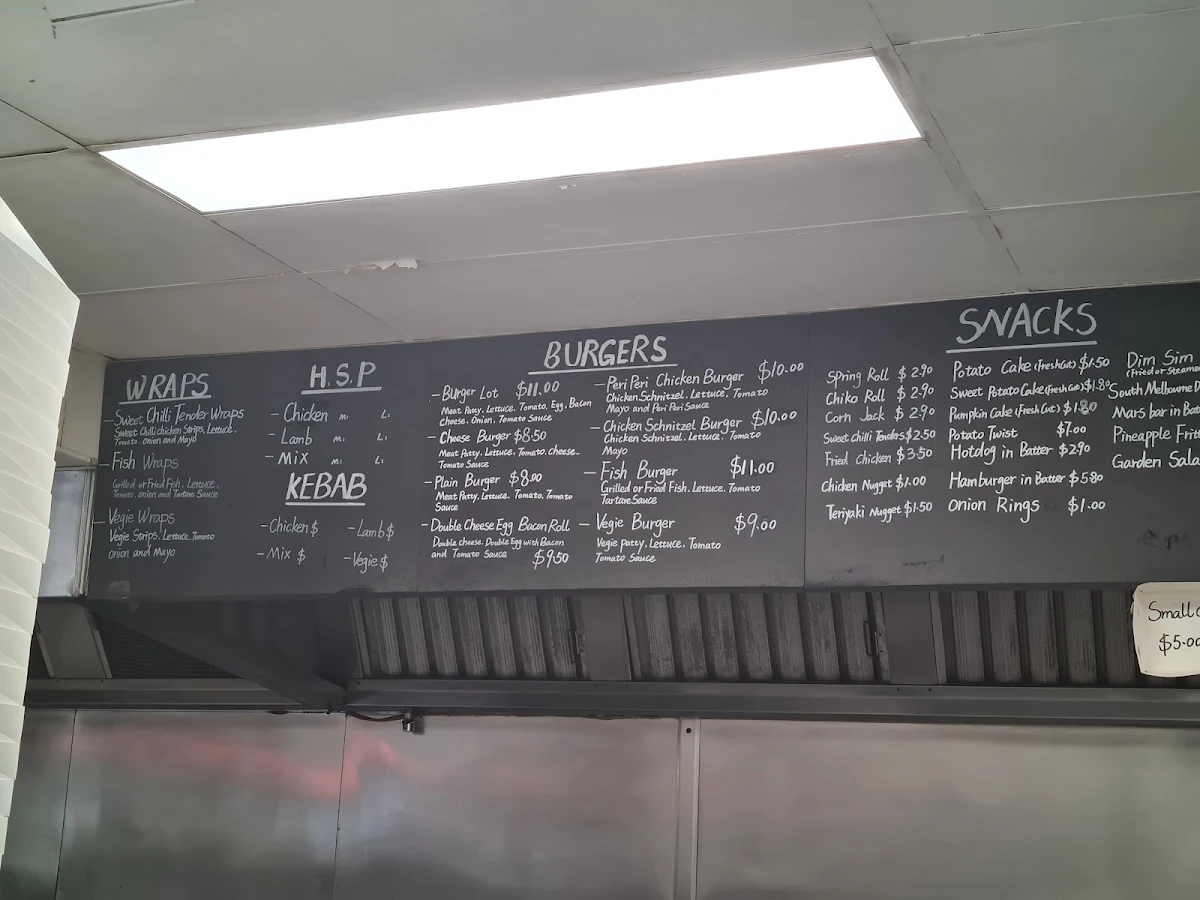 WRAPS
- Sweet Chilli Tender Wraps
Sweet Chilli chicken Strips, Lettuce,
Tomato, Onion and Mayo
- Fish Wraps
Grilled or Fried Fish, Lettuce,
Tomato, onion and Tartare Sauce
- Vegie Wraps
Vegie Strips, Lettuce, Tomato
onion and Mayo
H.S.P
- Chicken M: L:
- Lamb M: L:
- Mix M: L:
KEBAB
- Chicken $ - Lamb $
- Mix $ - Vegie $
BURGERS
- Burger Lot $11.00
Meat Patty, Lettuce, Tomato, Egg, Bacon
Cheese, Onion, Tomato Sauce
- Cheese Burger $8.50
Meat Patty, Lettuce, Tomato, cheese,
Tomato Sauce
- Plain Burger $8.00
Meat Patty, Lettuce, Tomato, Tomato
Sauce
- Double Cheese Egg Bacon Roll
Double cheese, Double Egg with Bacon
and Tomato Sauce $9.50
- Peri Peri Chicken Burger $10.00
Chicken Schnitzel, Lettuce, Tomato
Mayo and Peri Peri Sauce
- Chicken Schnitzel Burger $10.00
Chicken Schnitzel, Lettuce, Tomato
Mayo
- Fish Burger $11.00
Grilled or Fried Fish, Lettuce, Tomato
Tartare Sauce
- Vegie Burger $9.00
Vegie patty, Lettuce, Tomato
Tomato Sauce
SNACKS
Spring Roll $2.90
Chiko Roll $2.90
Corn Jack $2.90
Sweet Chilli Tenders $2.50
Fried Chicken $3.50
Chicken Nugget $1.00
Teriyaki Nugget $1.50
Potato Cake (Fresh Cut) $1.50
Sweet Potato Cake (Fresh Cut) $1.80
Pumpkin Cake (Fresh Cut) $1.80
Potato Twist $7.00
Hotdog in Batter $2.90
Hamburger in Batter $5.80
Onion Rings $1.00
Dim Sim
(Fried or Steame
South Melbourne D
Mars bar in Bat
Pineapple Fritt
Garden Sala
Small
$5.00